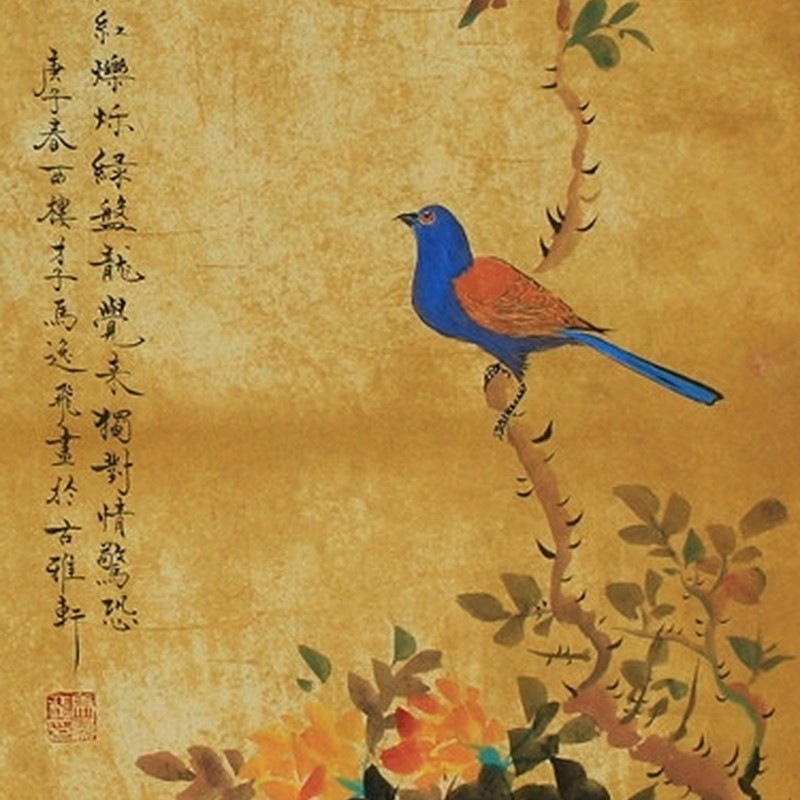 紅爍爍綠盤龍覺來獨對情驚恐
庚子春西樓才子馬逸飛畫於古雅軒